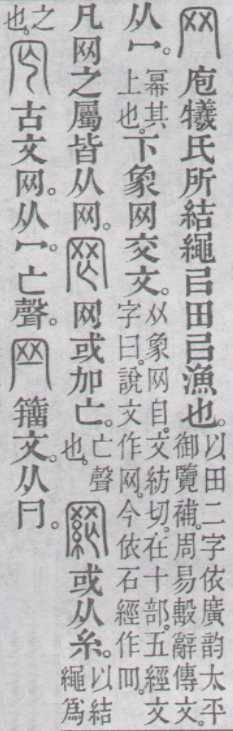 网 庖犧氏所結繩㠯田㠯漁也。以田二字依廣韵太平御覽補。周易毄辭傳文。
从冖。冪其上也。下象网交文。㸚象网目。文紡切。在十部。五經文字曰。說文作网。今依石經作罒。
凡网之屬皆从网。网或加亡。亡聲也。或从糸。以結繩爲
之也。古文网。从冖亡聲。籒文。从冃。